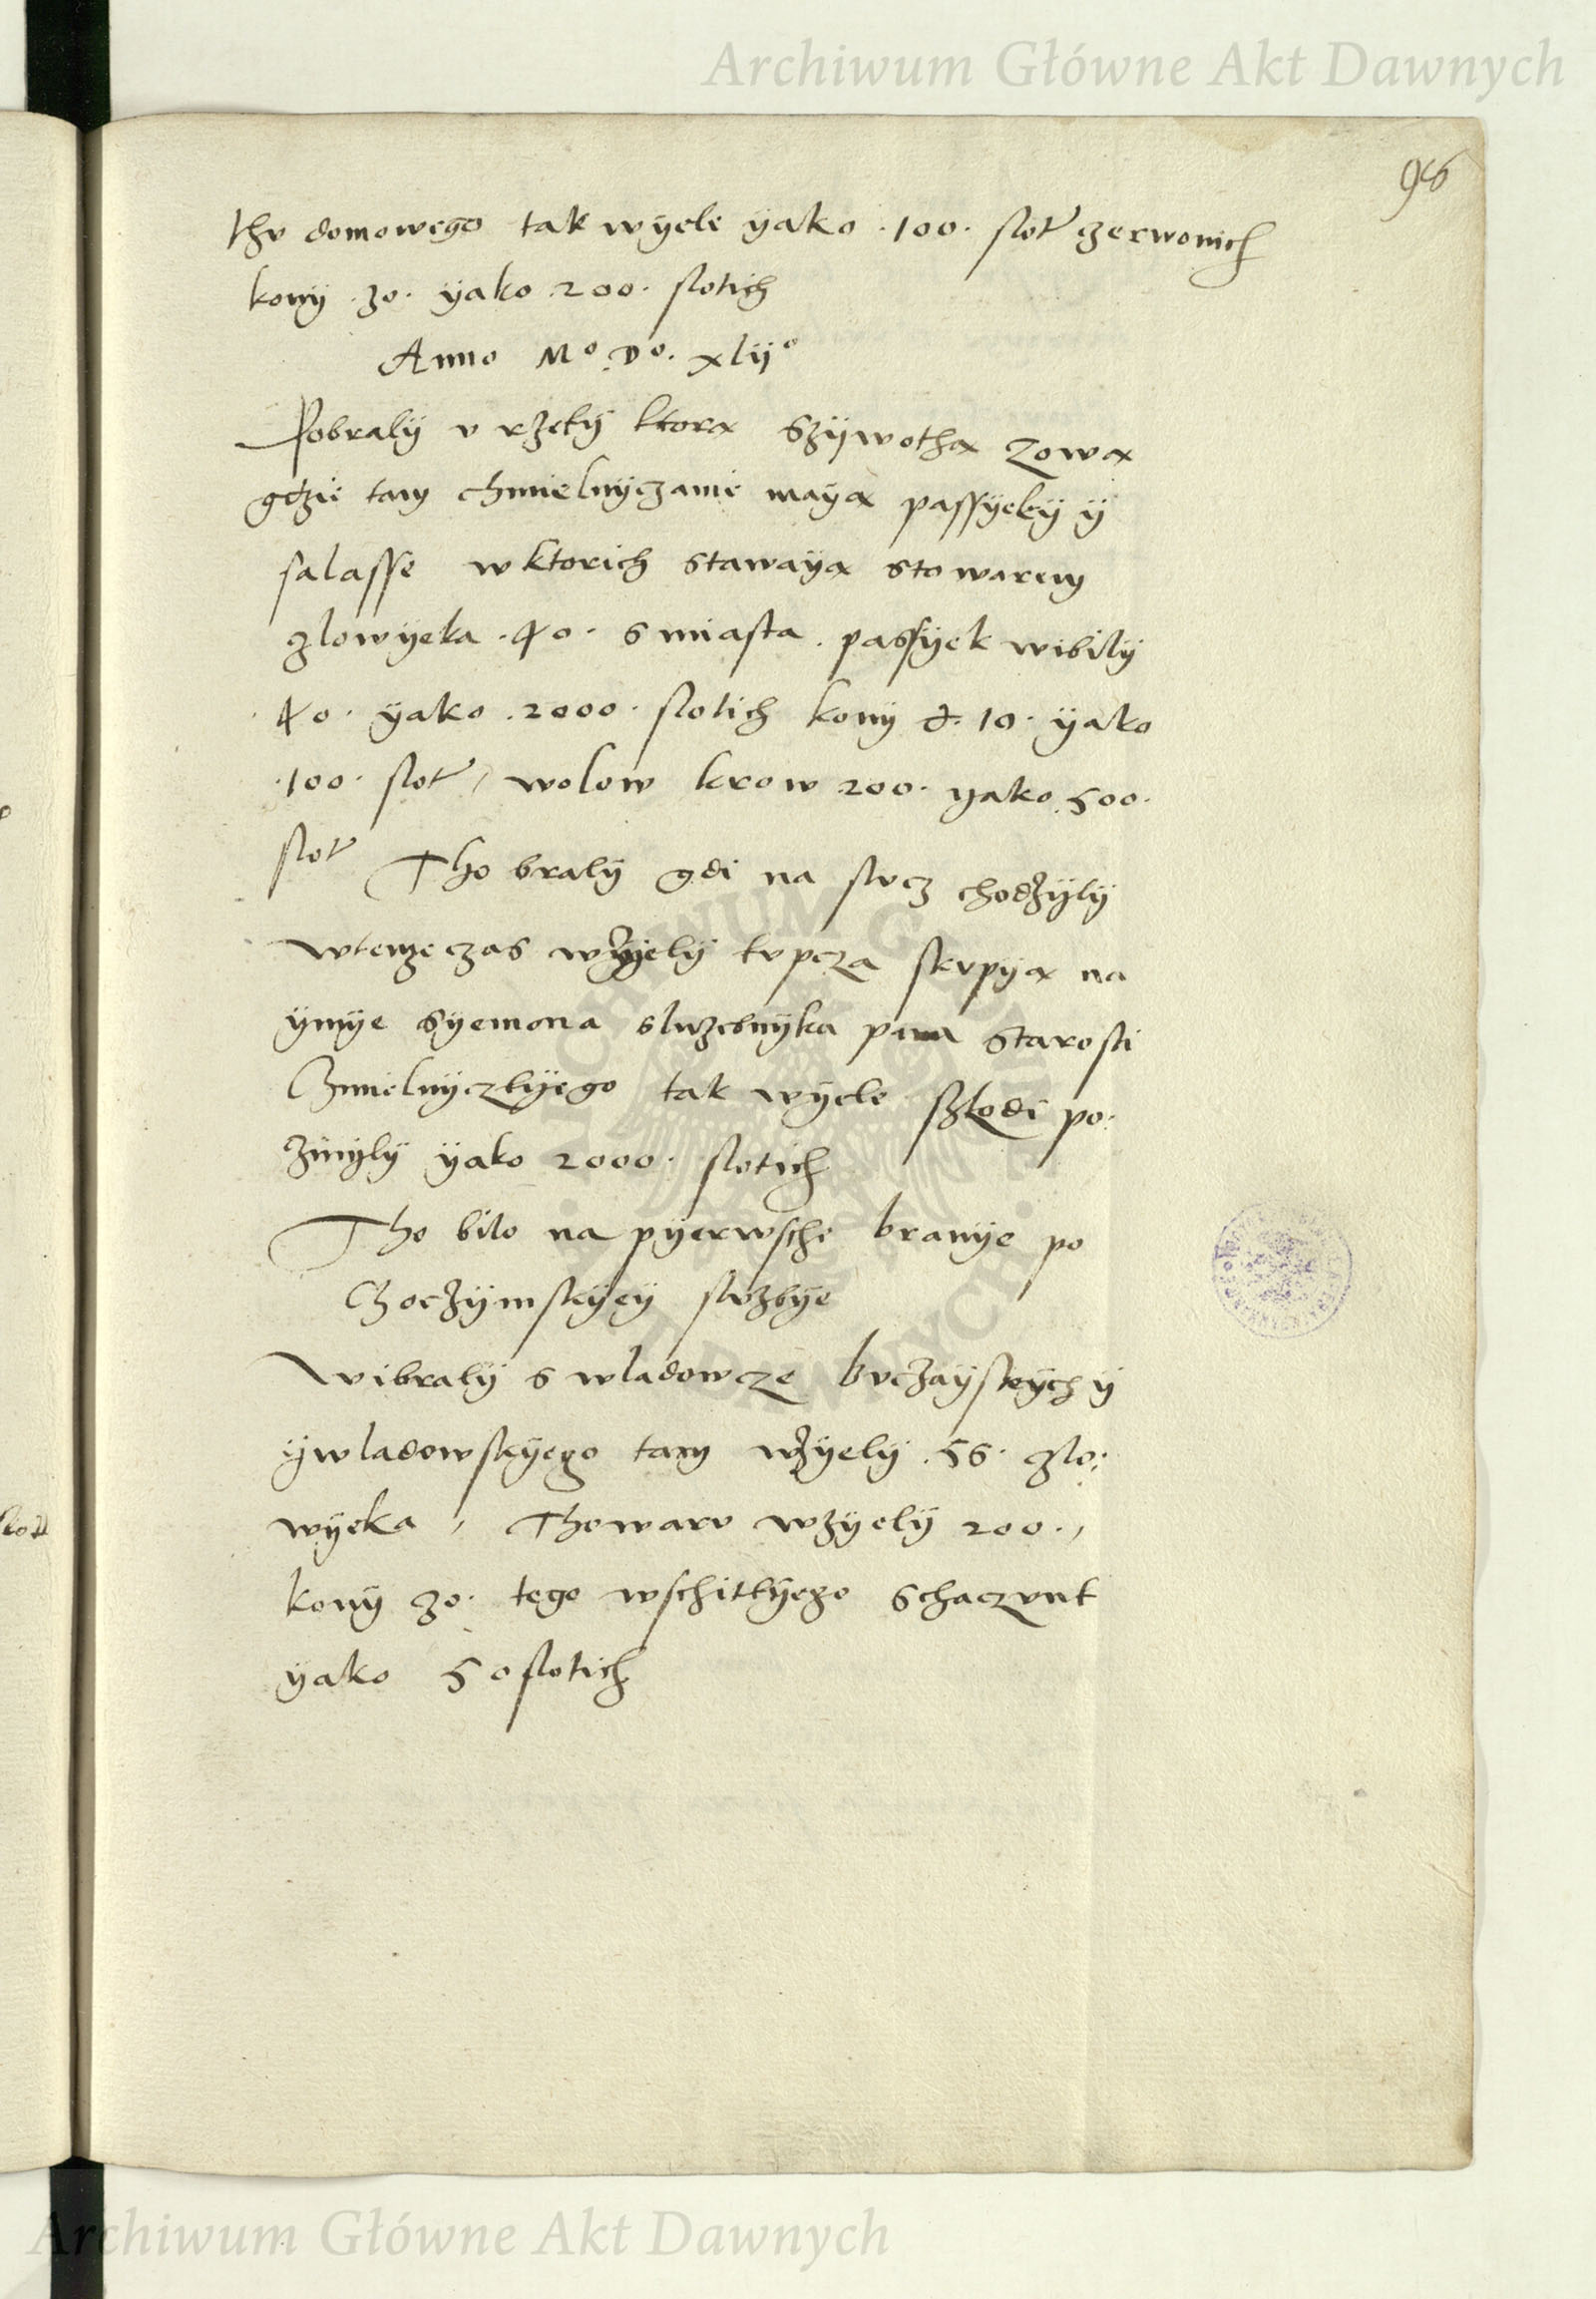 Archiwum Główne Akt Dawnych
thv domowego tak wÿele ÿako .100. slot czerwonich
konÿ .30. ÿako 200. slotich
Anno Mo. Do. xlijo
Pobralÿ v rzekÿ ktora Szÿwotha zowa
gdzie tam chmielnÿczanie maÿa passÿekÿ ÿ
salasse w ktorich stawaÿa stowarem
czlowÿeka .40. s miasta. passÿek wibilÿ
.40. ÿako .2000. slotich konÿ 10. ÿako
.100. slot, wolow krow 200. yako .500.
slot Tho bralÿ gdi na slvcz chodzÿlÿ
wtemze czas wzÿelÿ kvpcza skvpÿa na
ÿmÿe Sÿemona sluzebnÿka pana Starosti
Chmielnÿczkÿego tak wÿele szkodi po:
czinÿlÿ ÿako 2000. slotich
Tho bilo na pÿerwsche branÿe po
Choczÿmskÿeÿ slvzbÿe
Wibralÿ s wladowcze bvczaÿskÿch ÿ
ÿwladowskÿego tam wzÿelÿ .56. czlo:
wÿeka, Thowarv wzÿelÿ 200.,
konÿ 30. tego wschitkÿego schaczvnk
ÿako 50 slotich
Archiwum Główne Akt Dawnych